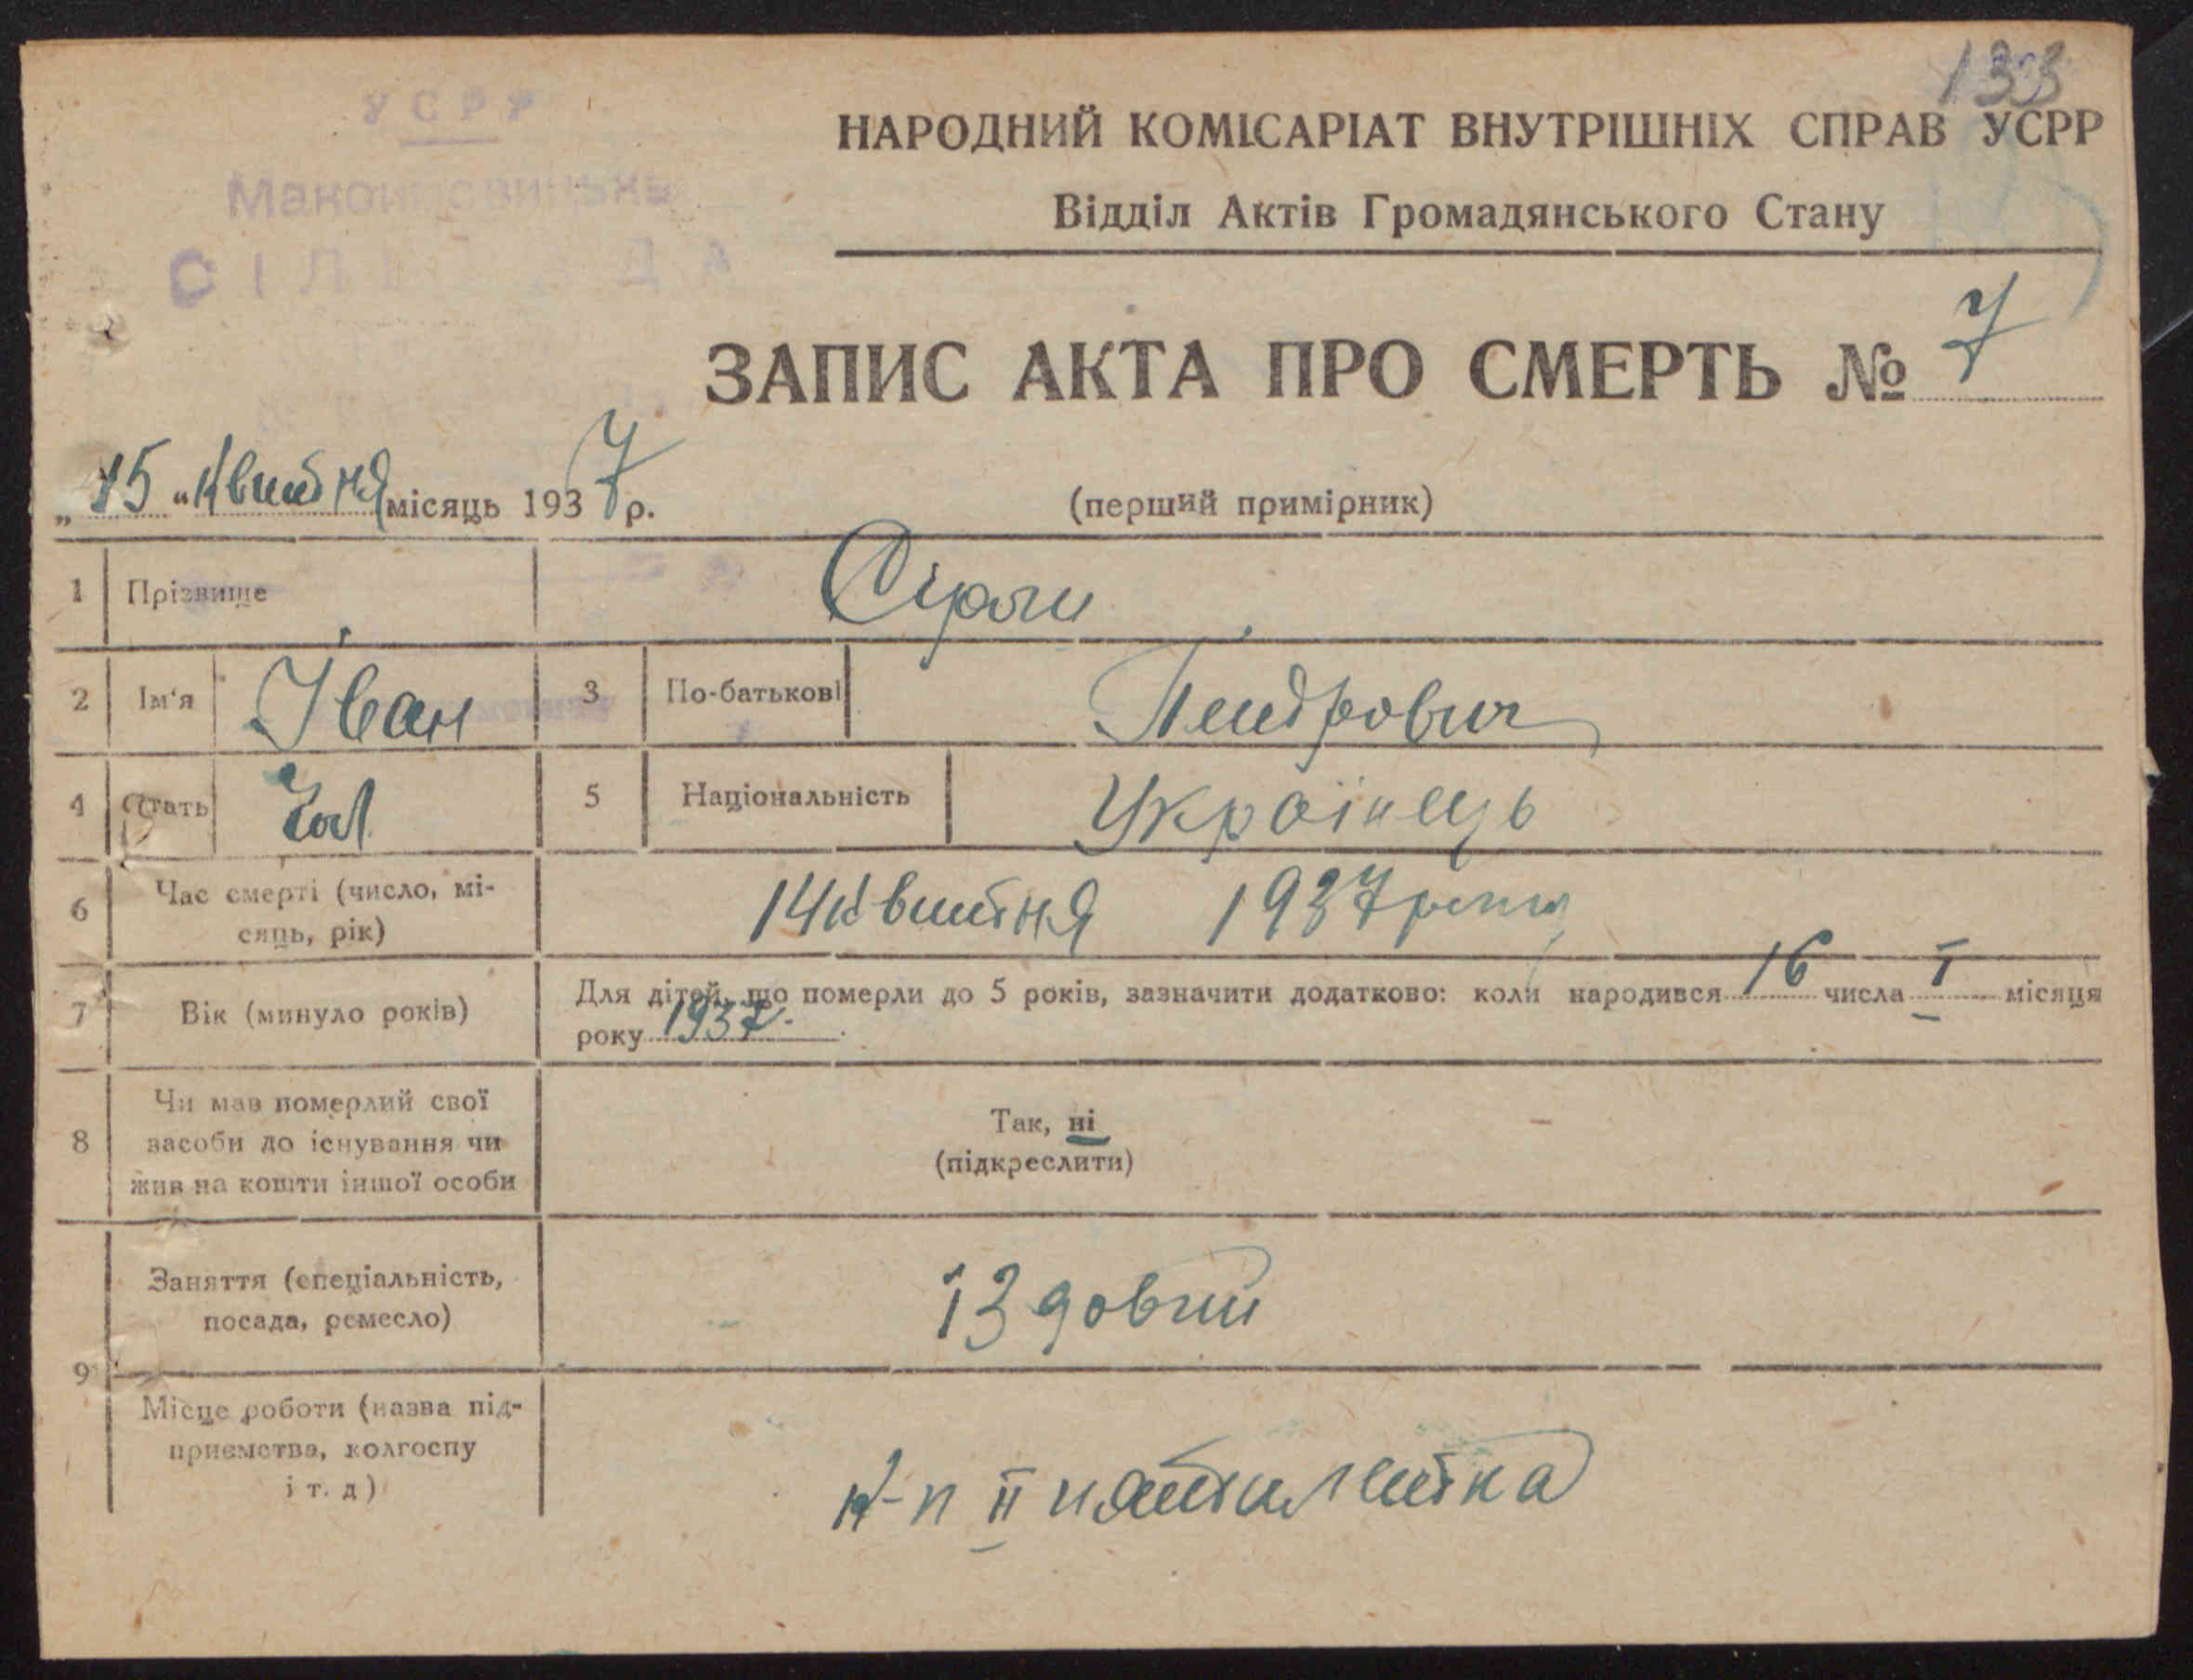 133
УСРР
НАРОДНИЙ КОМІСАРІАТ ВНУТРІШНІХ СПРАВ УСРР
Відділ Актів Громадянського Стану
ЗАПИС АКТА ПРО СМЕРТЬ № 7
„15“ Квитня місяць 1937 р.
(перший примірник)
1 Прізвище
2 Ім'я Іван 3 По-батькові Пендрович
4 Стать Чол 5 Національність Українець
6 Час смерті (число, мі-
сяць, рік) 14 квитня 1937 року
7 Вік (минуло років) Для дітей, що померли до 5 років, зазначити додатково: коли народився 16 числа I місяця
року 1937
8 Чи мав померлий свої
засоби до існування чи
жив на кошти іншої особи
Так, ні
(підкреслити)
9 Заняття (спеціальність,
посада, ремесло) їздовий
Місце роботи (назва під-
приємства, колгоспу
і т. д) к-п II пятилетка